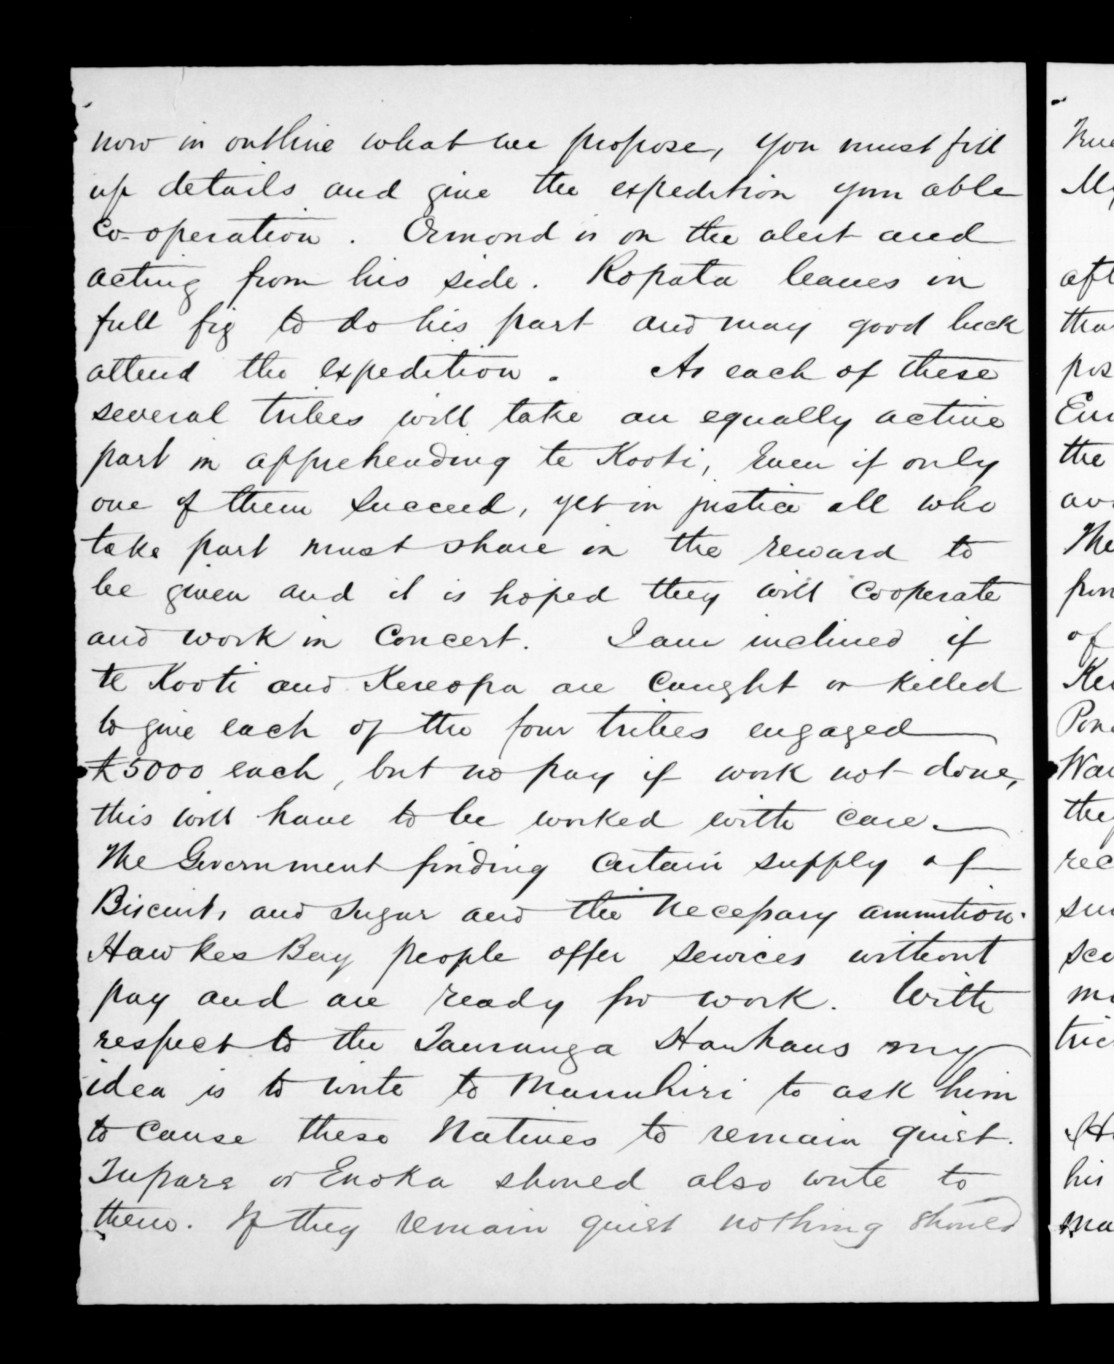 now in outline what we propose, you must fill
up details and give the expedition your able
Co-operation. Ormond is on the alert and
acting from his side. Ropata leaves in
full fig to do his part and may good luck
attend the expedition. As each of these
several tribes will take an equally active
part in apprehending te Kooti, Even if only
one of them succeed, yet in justice all who
take part must share in the reward to
be given and it is hoped they will cooperate
and work in Concert. I am inclined if
te Kooti and Kereopa are Caught or killed
to give each of the four tribes engaged
£5000 each, but no pay if work not done,
this will have to be worked with care.
The Government finding Certain supply of
Biscuit, and Sugar and the Necessary ammition.
Hawkes Bay people offer services without
pay and are ready for work. With
respect to the Tauranga Hauhaus my
idea is to write to Manuhiri to ask him
to Cause these Natives to remain quiet.
Tupara or Enoka should also write to
them. If they remain quiet nothing should
the
of
the
his